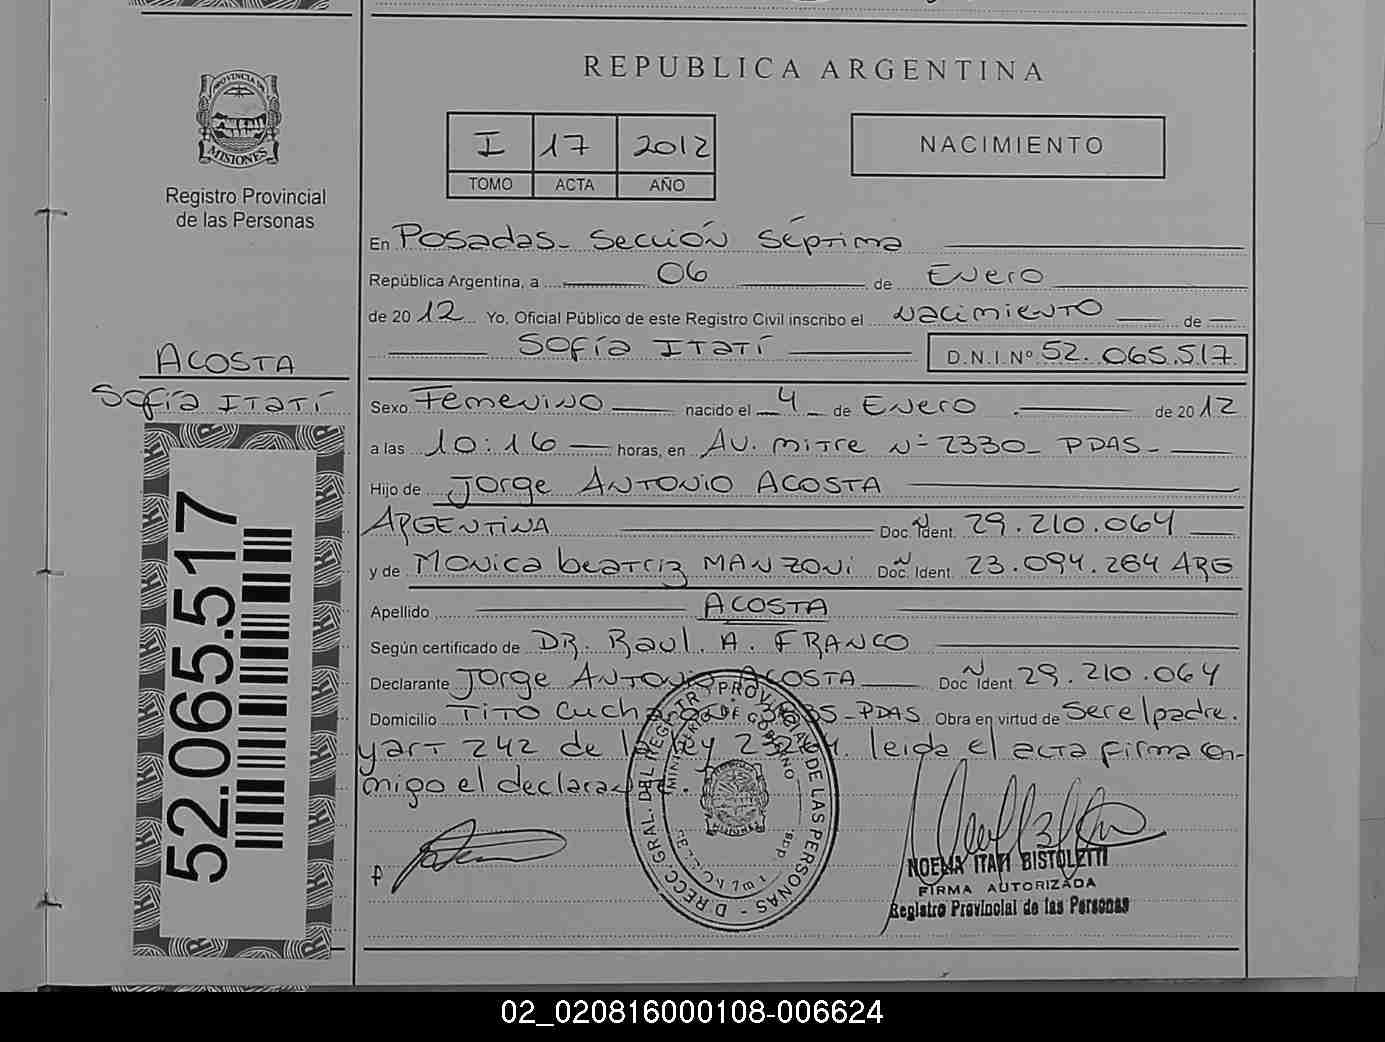 REPUBLICA ARGENTINA
PROVINCIA DE
MISIONES
Registro Provincial
de las Personas
I 17 2012
TOMO ACTA AÑO
NACIMIENTO
En Posadas - Sección Séptima
República Argentina, a 06 de Enero
de 2012 Yo, Oficial Público de este Registro Civil inscribo el nacimiento de
Sofía Itatí D.N.I. Nº 52.065.517
ACOSTA
Sofía Itatí
Sexo Femenino nacido el 4 de Enero de 2012
a las 10:16 horas, en Av. mitre Nº 2330 - PDAS -
Hijo de Jorge Antonio ACOSTA
ARGENTINA Doc. Nº Ident. 29.210.064
y de Monica beatriz MANZONI Doc. Nº Ident. 23.094.264 ARG
Apellido ACOSTA
Según certificado de DR. Raul. A. FRANCO
Declarante Jorge Antonio ACOSTA Doc. Nº Ident. 29.210.064
Domicilio Tito - PDAS Obra en virtud de Ser el padre.
y art 242 de leida el acta firma con-
migo el declarante.
52.065.517
DIRECC. GRAL. DEL REGISTRO PROVINCIAL DE LAS PERSONAS
MINISTERIO DE GOBIERNO
MISIONES
NOELIA ITATI BISTOLETTI
FIRMA AUTORIZADA
Registro Provincial de las Personas
02_020816000108-006624